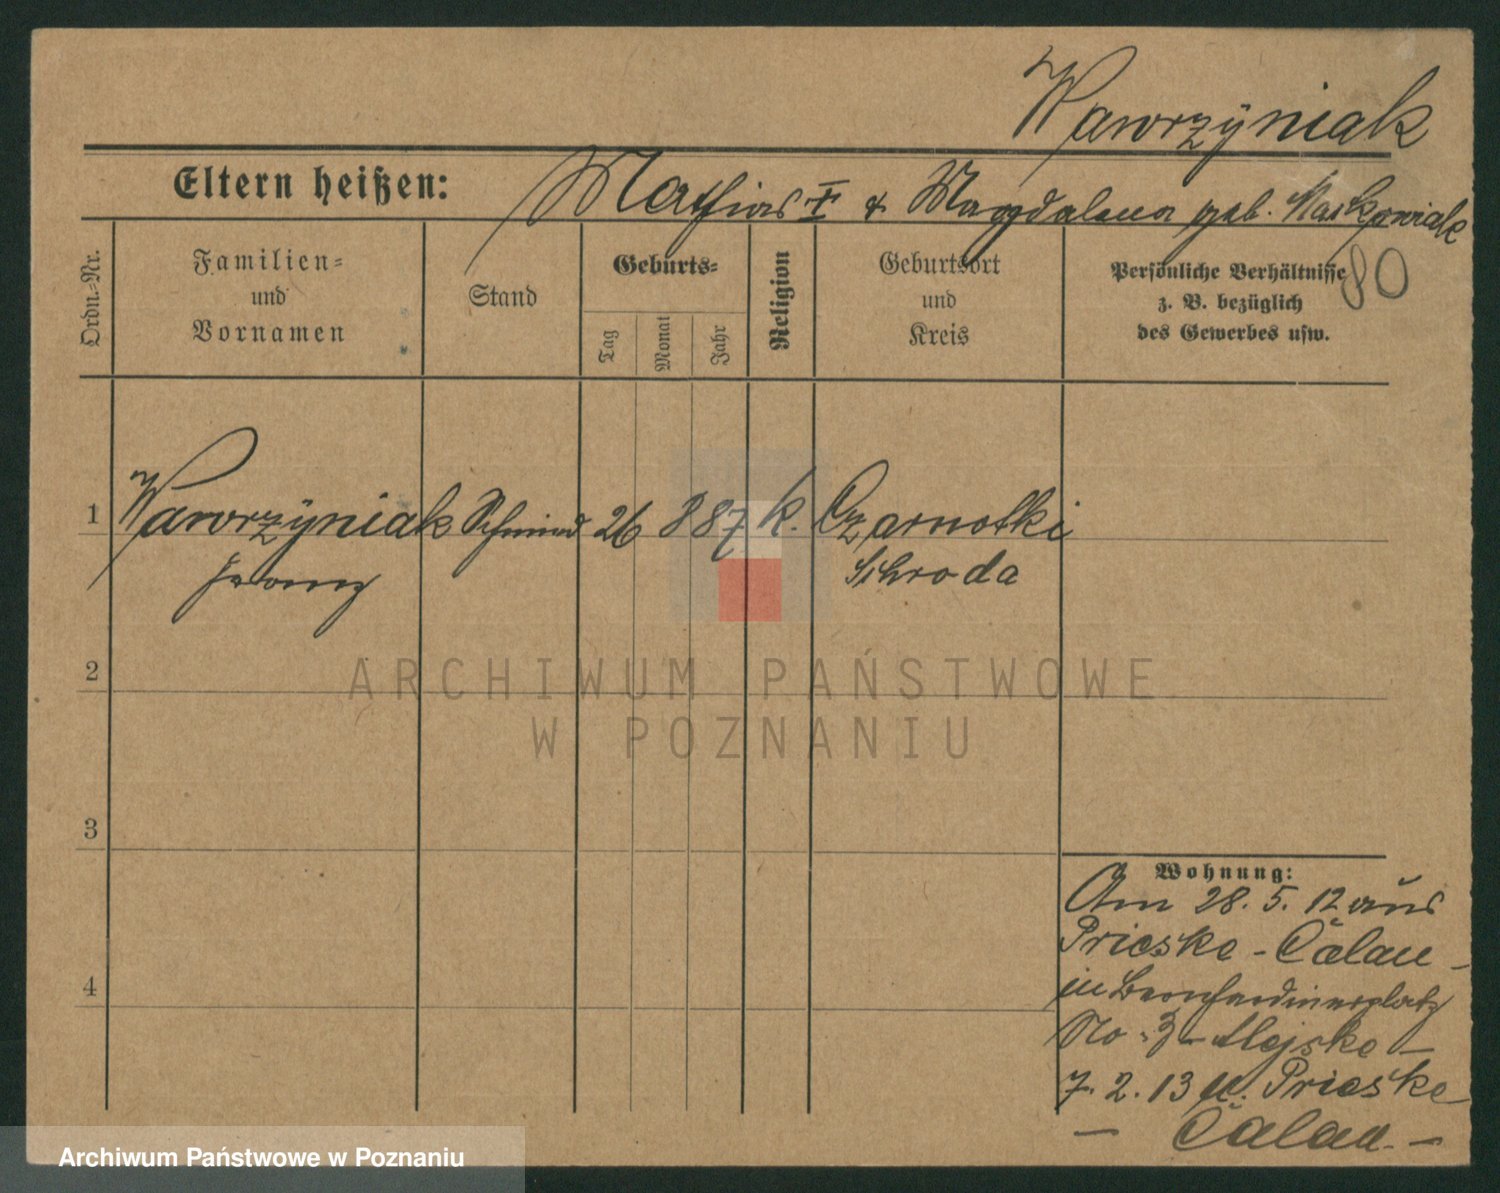 Wawrzÿniak
Eltern heißen: Mathias † & Magdalena geb.
80
Ordn.-Nr.
Familien-
und
Vornamen
Stand
Geburts-
Tag
Monat
Jahr
Religion
Geburtsort
und
Kreis
Persönliche Verhältnisse
z. B. bezüglich
des Gewerbes usw.
1 Wawrzÿniak Schmied 26 8 87 k. Czarnotki
Franz Schroda
2
ARCHIWUM PAŃSTWOWE
W POZNANIU
3
4
Wohnung:
Am 28. 5. 12 aus
Prieske - Calau -
in Bernhardinerplatz
No - 3 -
7. 2. 13 n. Prieske
- Calau -
Archiwum Państwowe w Poznaniu